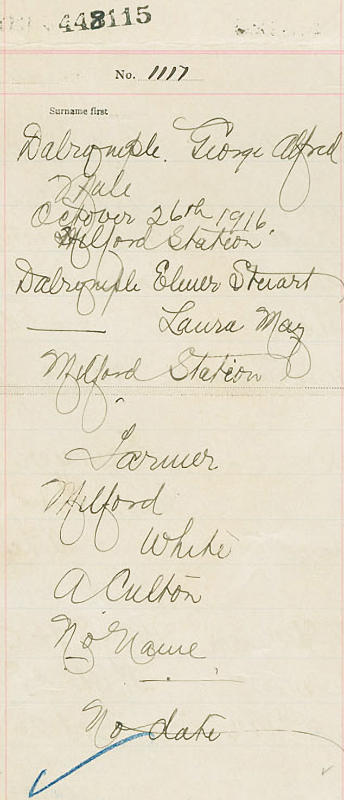 448115
No. 1117
Surname first
Dalrymple. George Alfred
Male
October 26th 1916.
Milford Station
Dalrymple Elmer Stewart
Laura May
Milford Station
Farmer
Milford
White
A Culton
No Name
No date